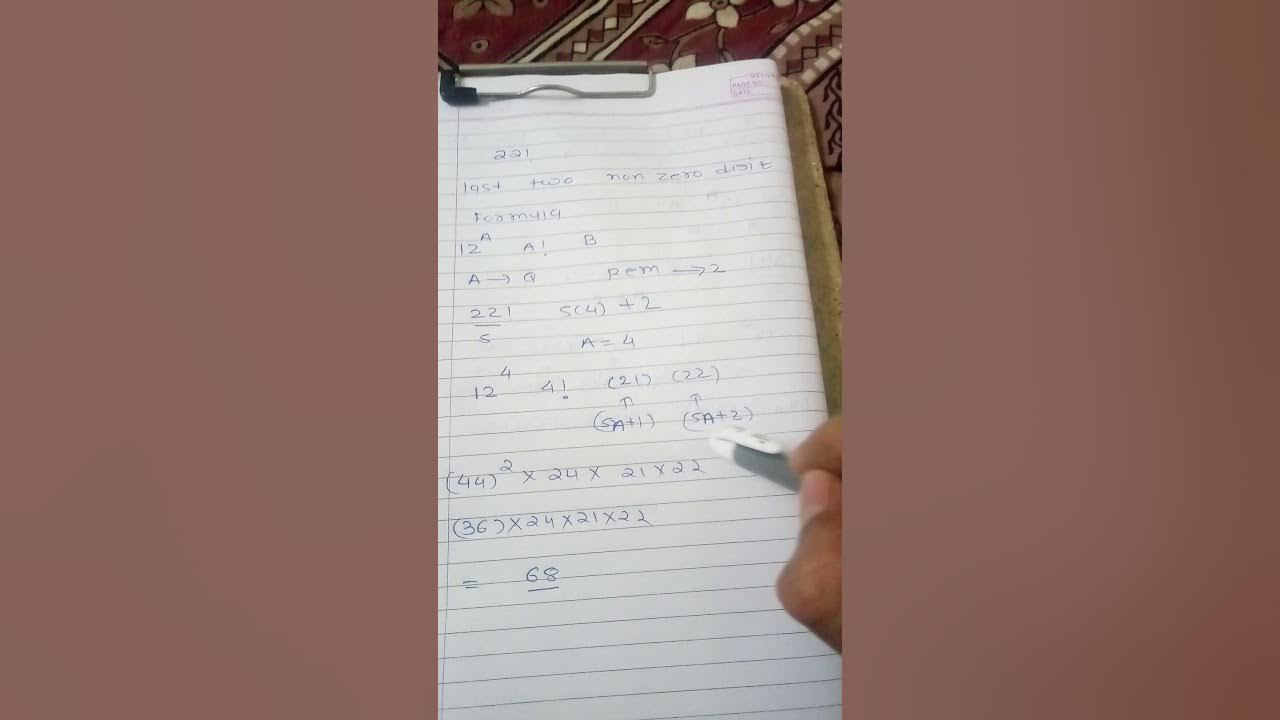 DELUXE
PAGE NO.
DATE
22!
last two non zero digit
Formula
12^A A! B
A → Q Rem → 2
22!/5 5(4) + 2
A = 4
12^4 4! (21) (22)
↑ ↑
(5A+1) (5A+2)
(44)^2 × 24 × 21 × 22
(36) × 24 × 21 × 22
= 68